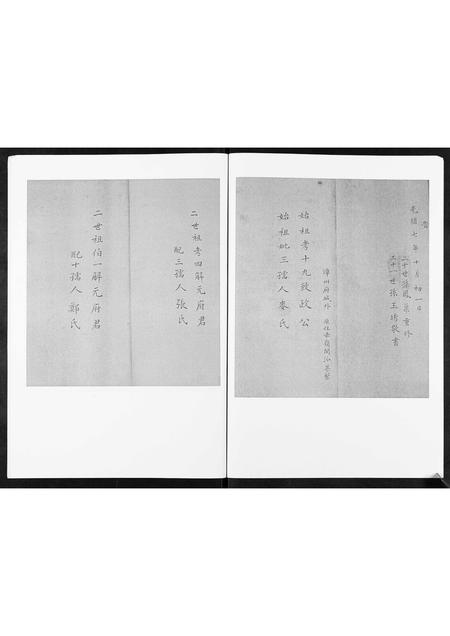 光緒七年十月初一日
二十世孫鳳巢重修
二十一世張玉琇敬書
漳州府城外
始祖考十九致政公
始祖妣三孺人麥氏
二世祖考四解元府君
配三孺人張氏
二世祖伯一解元府君
配十孺人鄭氏